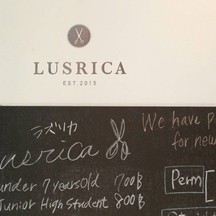 LUSRICA
EST.2015
ラズリカ
Lusrica
We have
for new
under 7 years old 700฿
Junior High Student 800฿
Perm